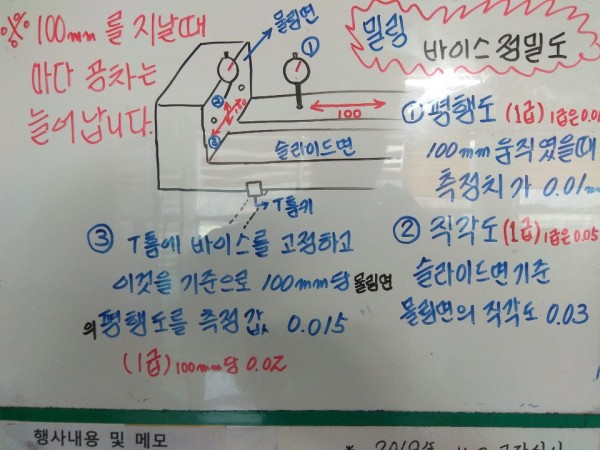 ※ 100mm를 지날때
마다 공차는
늘어납니다.
물림면
①
밀링 바이스정밀도
②
③
100
슬라이드면
T홈키
① 평행도 (1급) 1급은 0.01
100mm 움직였을때
측정치가 0.01m
② 직각도 (1급) 1급은 0.05
슬라이드면기준
물림면의 직각도 0.03
③ T홈에 바이스를 고정하고
이것을 기준으로 100mm당 물림면
의 평행도를 측정값 0.015
(1급) 100mm당 0.02
행사내용 및 메모